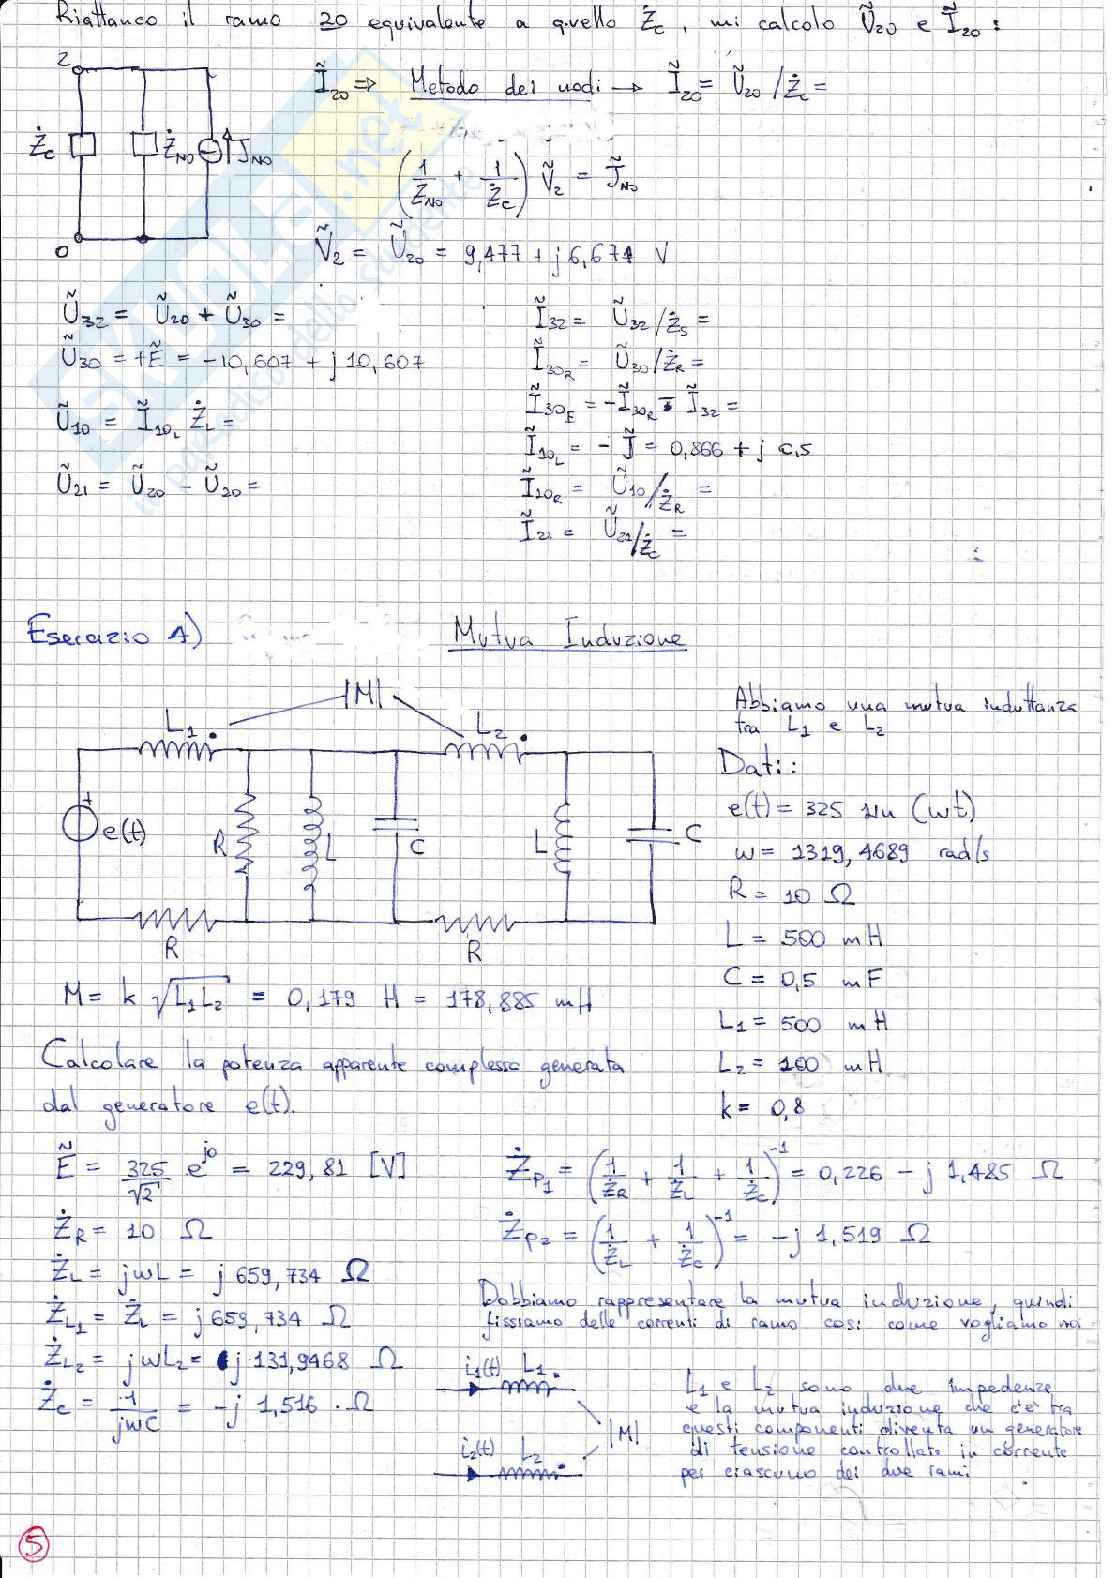 Riattacco il ramo 20 equivalente a quello Żc, mi calcolo Ũ20 e Ĩ20:
Ĩ20 => Metodo dei nodi → Ĩ20 = Ũ20 / Żc =
2
Żc
ŻNO
JNO
0
(1/ŻNO + 1/Żc) Ṽ2 = J̃NO
Ṽ2 = Ũ20 = 9,477 + j 6,671 V
Ũ32 = Ũ20 + Ũ30 =
Ũ30 = +Ẽ = -10,607 + j 10,607
Ũ10 = Ĩ10L ŻL =
Ũ21 = Ũ20 - Ũ20 =
Ĩ32 = Ũ32 / Żs =
Ĩ30R = Ũ30 / ŻR =
Ĩ30E = -Ĩ30R - Ĩ32 =
Ĩ10L = - J̃ = 0,866 + j 0,5
Ĩ10R = Ũ10 / ŻR =
Ĩ21 = Ũ21 / Żc =
Esercizio A)
Mutua Induzione
|M|
L1
L2
e(t)
R
L
C
L
C
R
R
Abbiamo una mutua induttanza
tra L1 e L2
Dati:
e(t) = 325 sin (wt)
w = 1319,4689 rad/s
R = 10 Ω
L = 500 mH
C = 0,5 mF
L1 = 500 mH
L2 = 100 mH
k = 0,8
M = k √L1 L2 = 0,179 H = 178,885 mH
Calcolare la potenza apparente complessa generata
dal generatore e(t).
Ẽ = 325/√2 e^j0 = 229,81 [V]
ŻR = 10 Ω
ŻL = jwL = j 659,734 Ω
ŻL1 = ŻL = j 659,734 Ω
ŻL2 = jwL2 = j 131,9468 Ω
Żc = 1/jwC = -j 1,516 · Ω
Żp1 = (1/ŻR + 1/ŻL + 1/Żc)^-1 = 0,226 - j 1,485 Ω
Żp2 = (1/ŻL + 1/Żc)^-1 = -j 1,519 Ω
Dobbiamo rappresentare la mutua induzione, quindi
fissiamo delle correnti di ramo così come vogliamo noi
i1(t) L1
|M|
i2(t) L2
L1 e L2 sono due impedenze
e la mutua induzione che c'è tra
questi componenti diventa un generatore
di tensione controllato in corrente
per ciascuno dei due rami
5